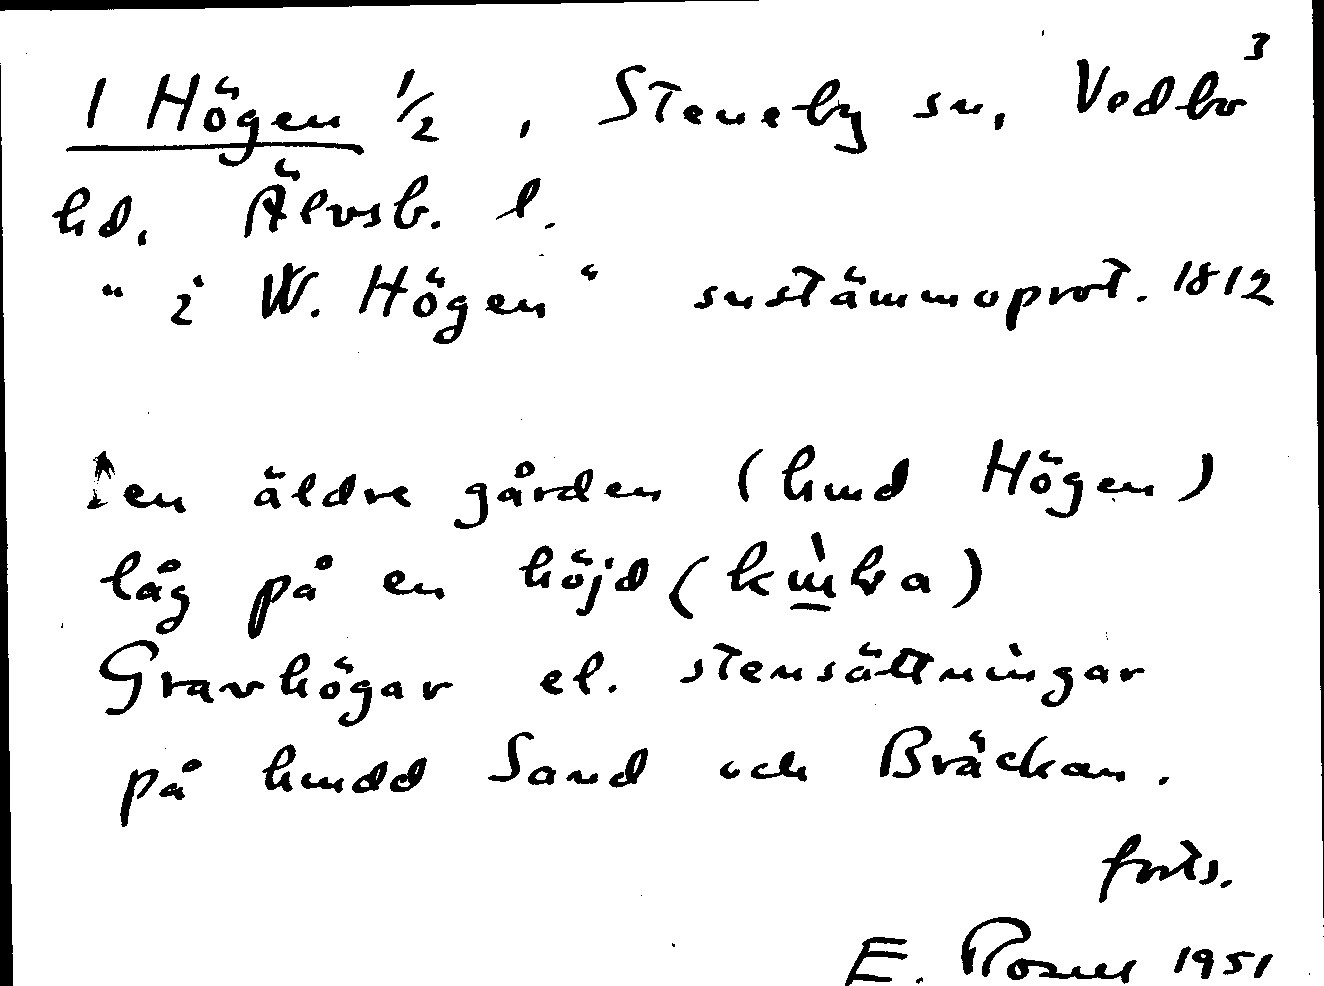 1 Högen 1/2, Steneby sn, Vedbo 3
hd, Älvsb. l.
"i W. Högen" snstämmoprot. 1812
Den äldre gården (hmd Högen)
låg på en höjd (
Gravhögar el. stensättningar
på hmdd Sand och Bräckan.
forts.
E. Rosell 1951